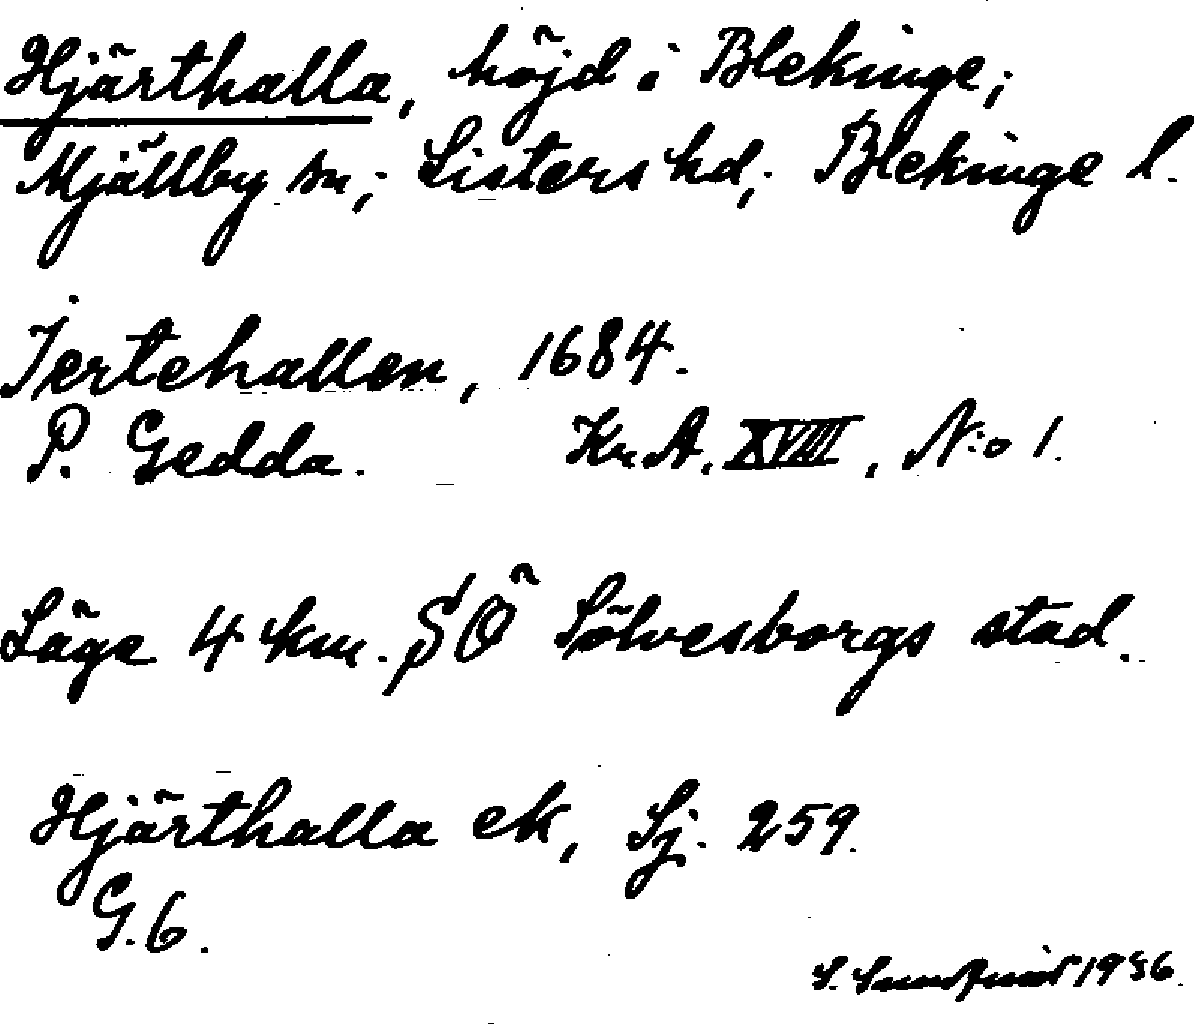 Hjärthalla, höjd i Blekinge;
Mjällby sn; Listers hd; Blekinge l.
Jertehallen, 1684.
P. Gedda. Kr.A. XVIII, N:o 1.
Läge 4 km. SÖ Sölvesborgs stad.
Hjärthalla ek, Sj. 259.
G.6.
S. 1956.